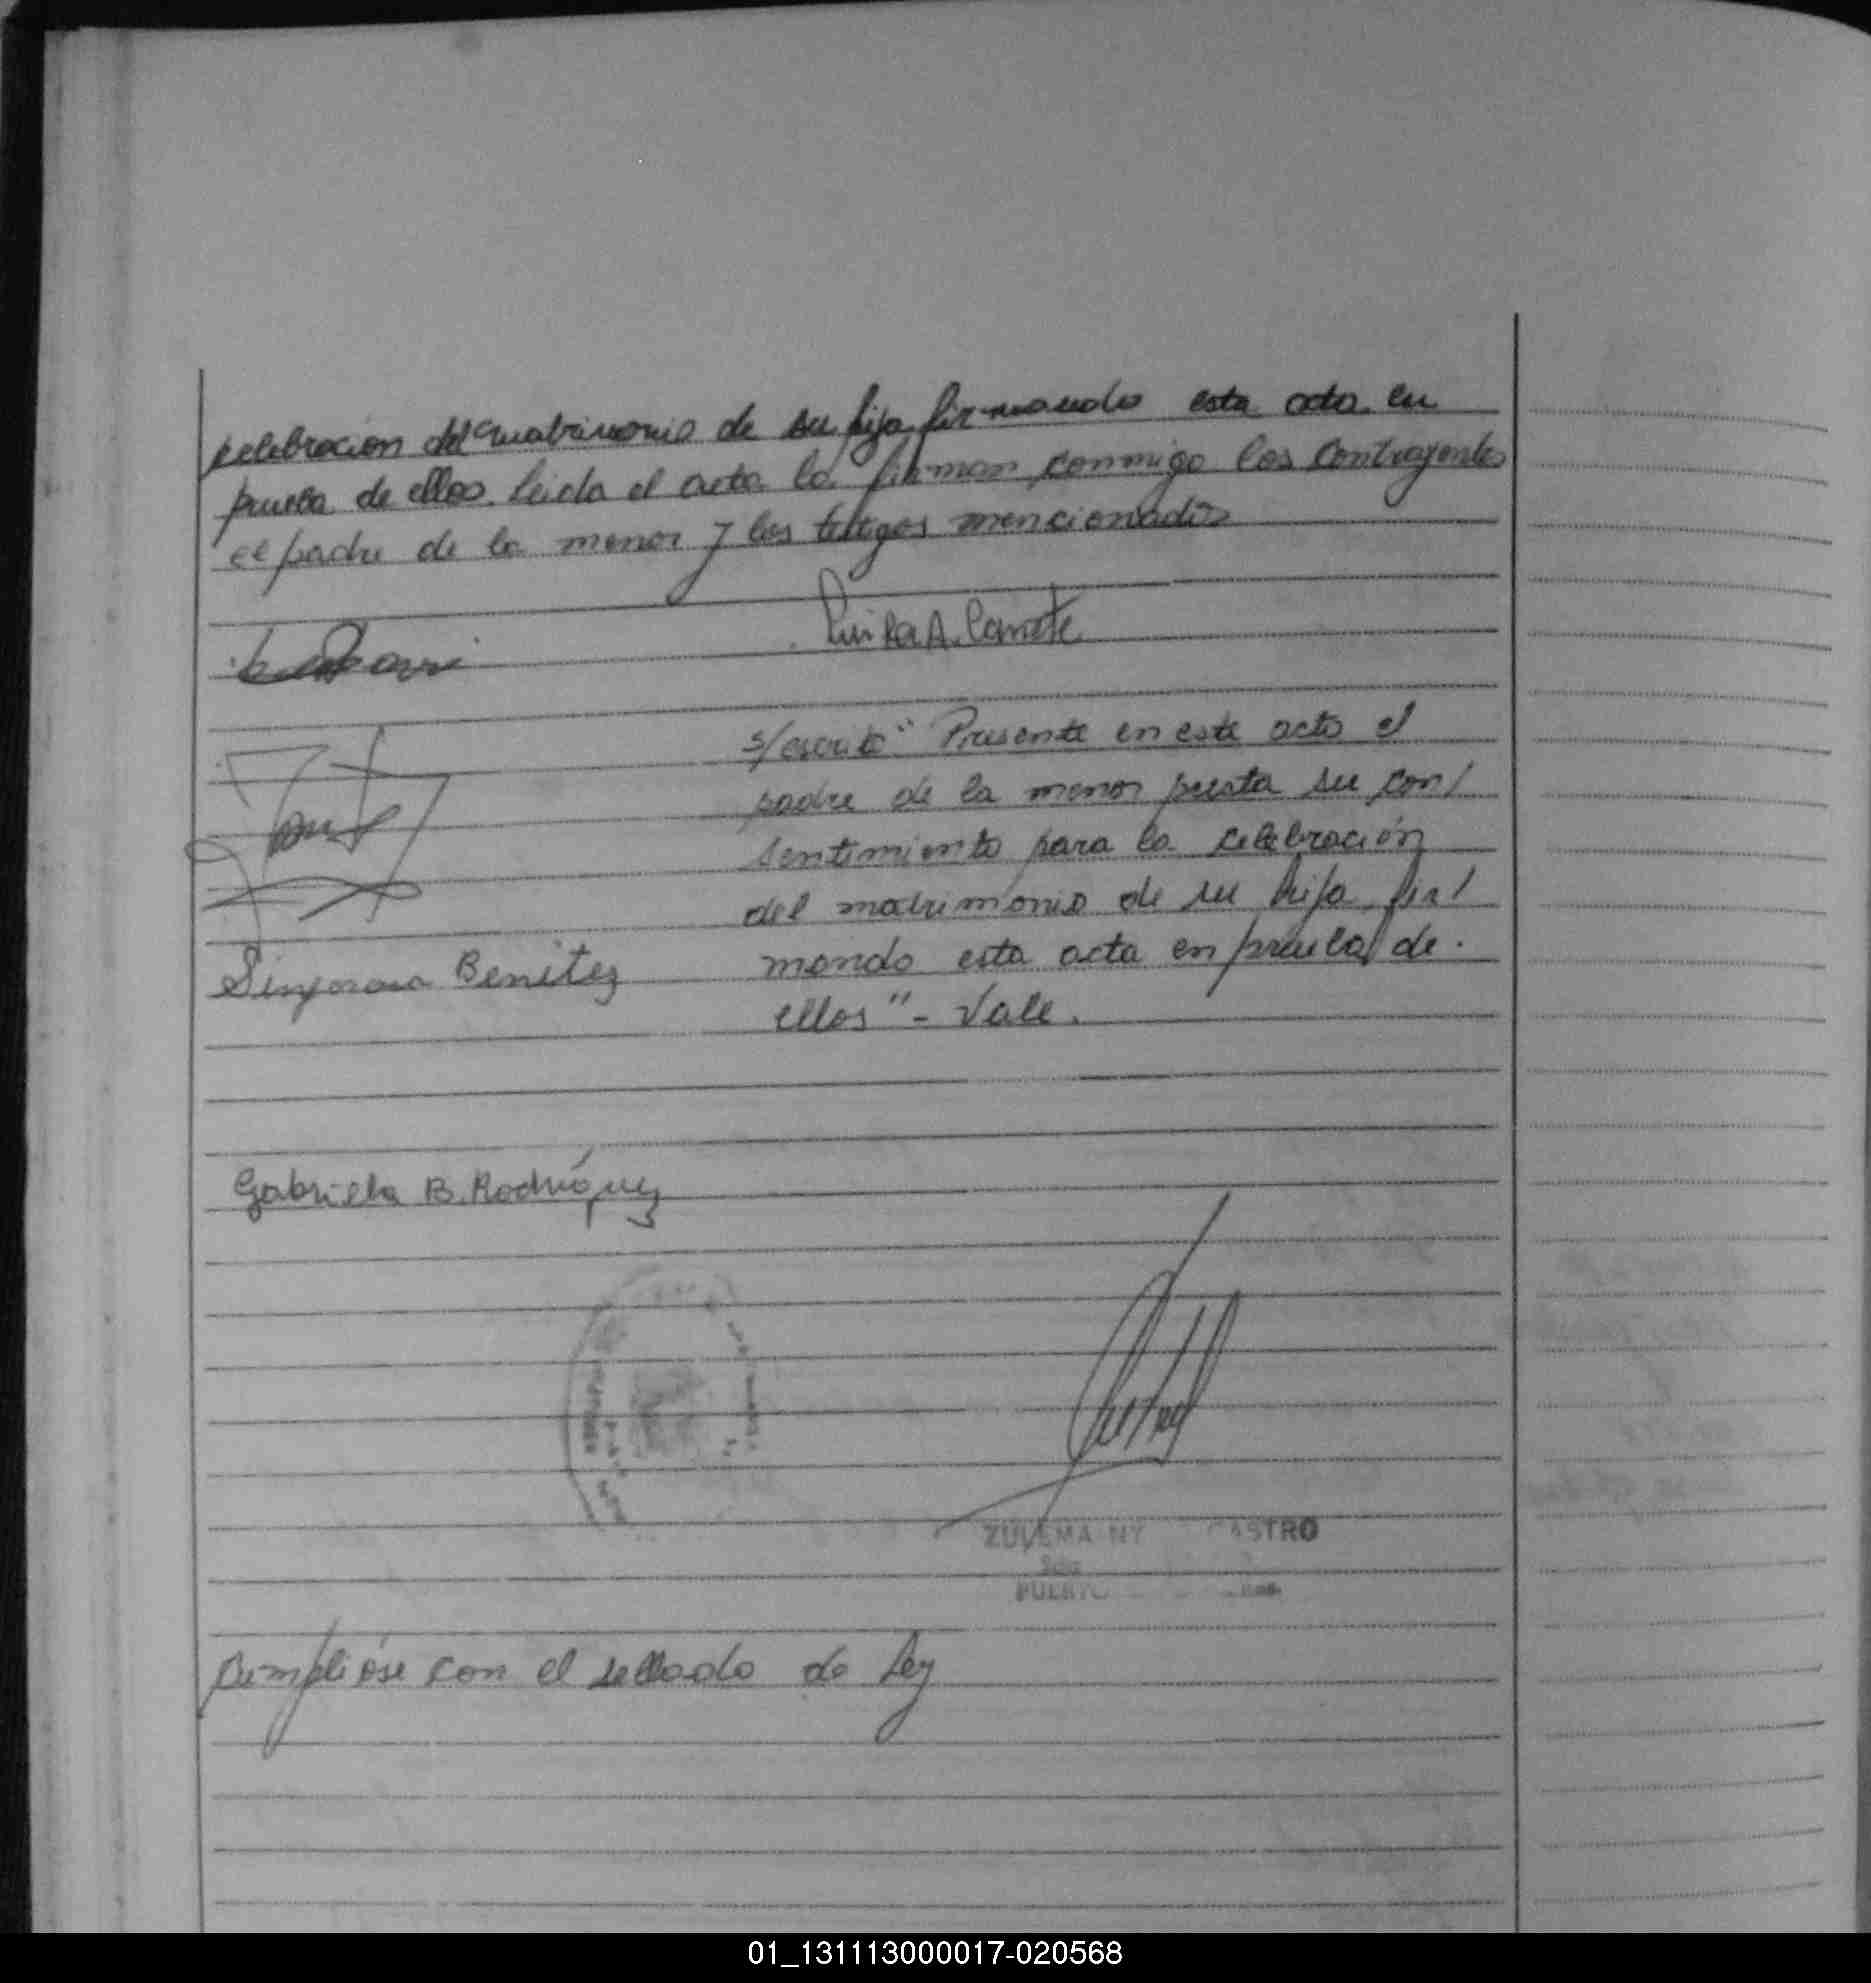 celebracion del matrimonio de su hija firmando esta acta en
prueba de ellos. Leida el acta la firman conmigo los contrayentes
el padre de la menor y los testigos mencionados
Luisa A. Canete
s/escrito "Presente en este acto el
padre de la menor presta su con/
sentimiento para la celebración
del matrimonio de su hija fir/
mando esta acta en prueba de.
ellos" - Vale.
Benitez
Gabriela B. Rodríguez
ZULEMA NY CASTRO
PUERTO
Cumplióse con el sellado de Ley
01_131113000017-020568